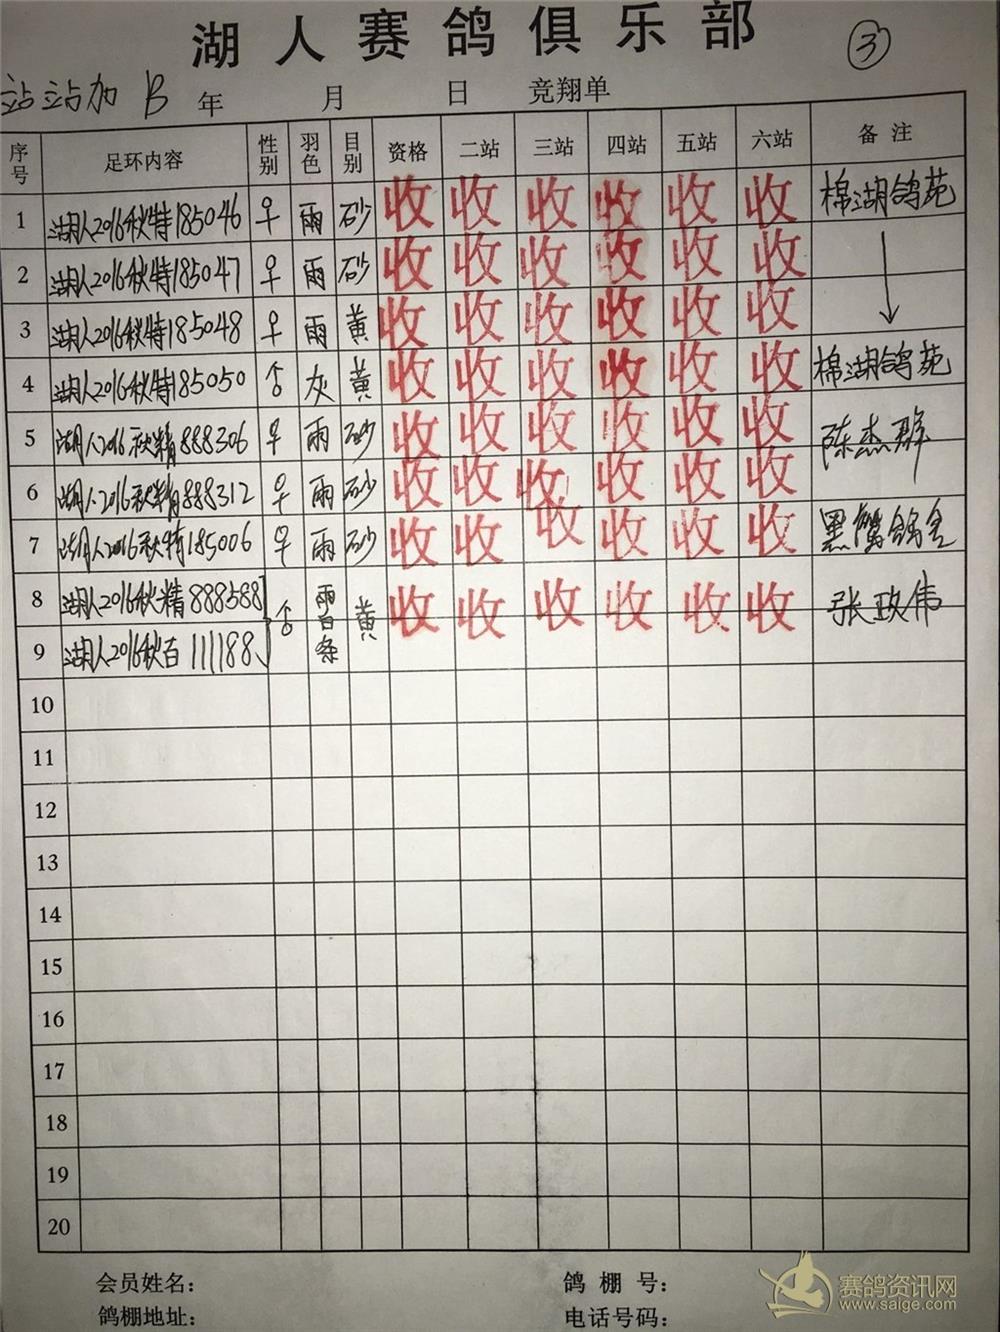 湖人赛鸽俱乐部
③
站站加 B 年 月 日 竞翔单
序号 足环内容 性别 羽色 目别 资格 二站 三站 四站 五站 六站 备注
1 湖人2016秋特185046 ♀ 雨 砂 收 收 收 收 收 收 棉湖鸽苑
2 湖人2016秋特185047 ♀ 雨 砂 收 收 收 收 收 收
3 湖人2016秋特185048 ♀ 雨 黄 收 收 收 收 收 收
4 湖人2016秋特185050 ♂ 灰 黄 收 收 收 收 收 收 棉湖鸽苑
5 湖人2016秋精888306 ♀ 雨 砂 收 收 收 收 收 收 陈杰群
6 湖人2016秋精888312 ♀ 雨 砂 收 收 收 收 收 收
7 湖人2016秋特185006 ♀ 雨 砂 收 收 收 收 收 收 黑鹰鸽舍
8 湖人2016秋精888588 ♂ 雨白条 黄 收 收 收 收 收 收 张政伟
9 湖人2016秋百111188
10
11
12
13
14
15
16
17
18
19
20
会员姓名： 鸽棚号：
鸽棚地址： 电话号码：
赛鸽资讯网
www.saige.com